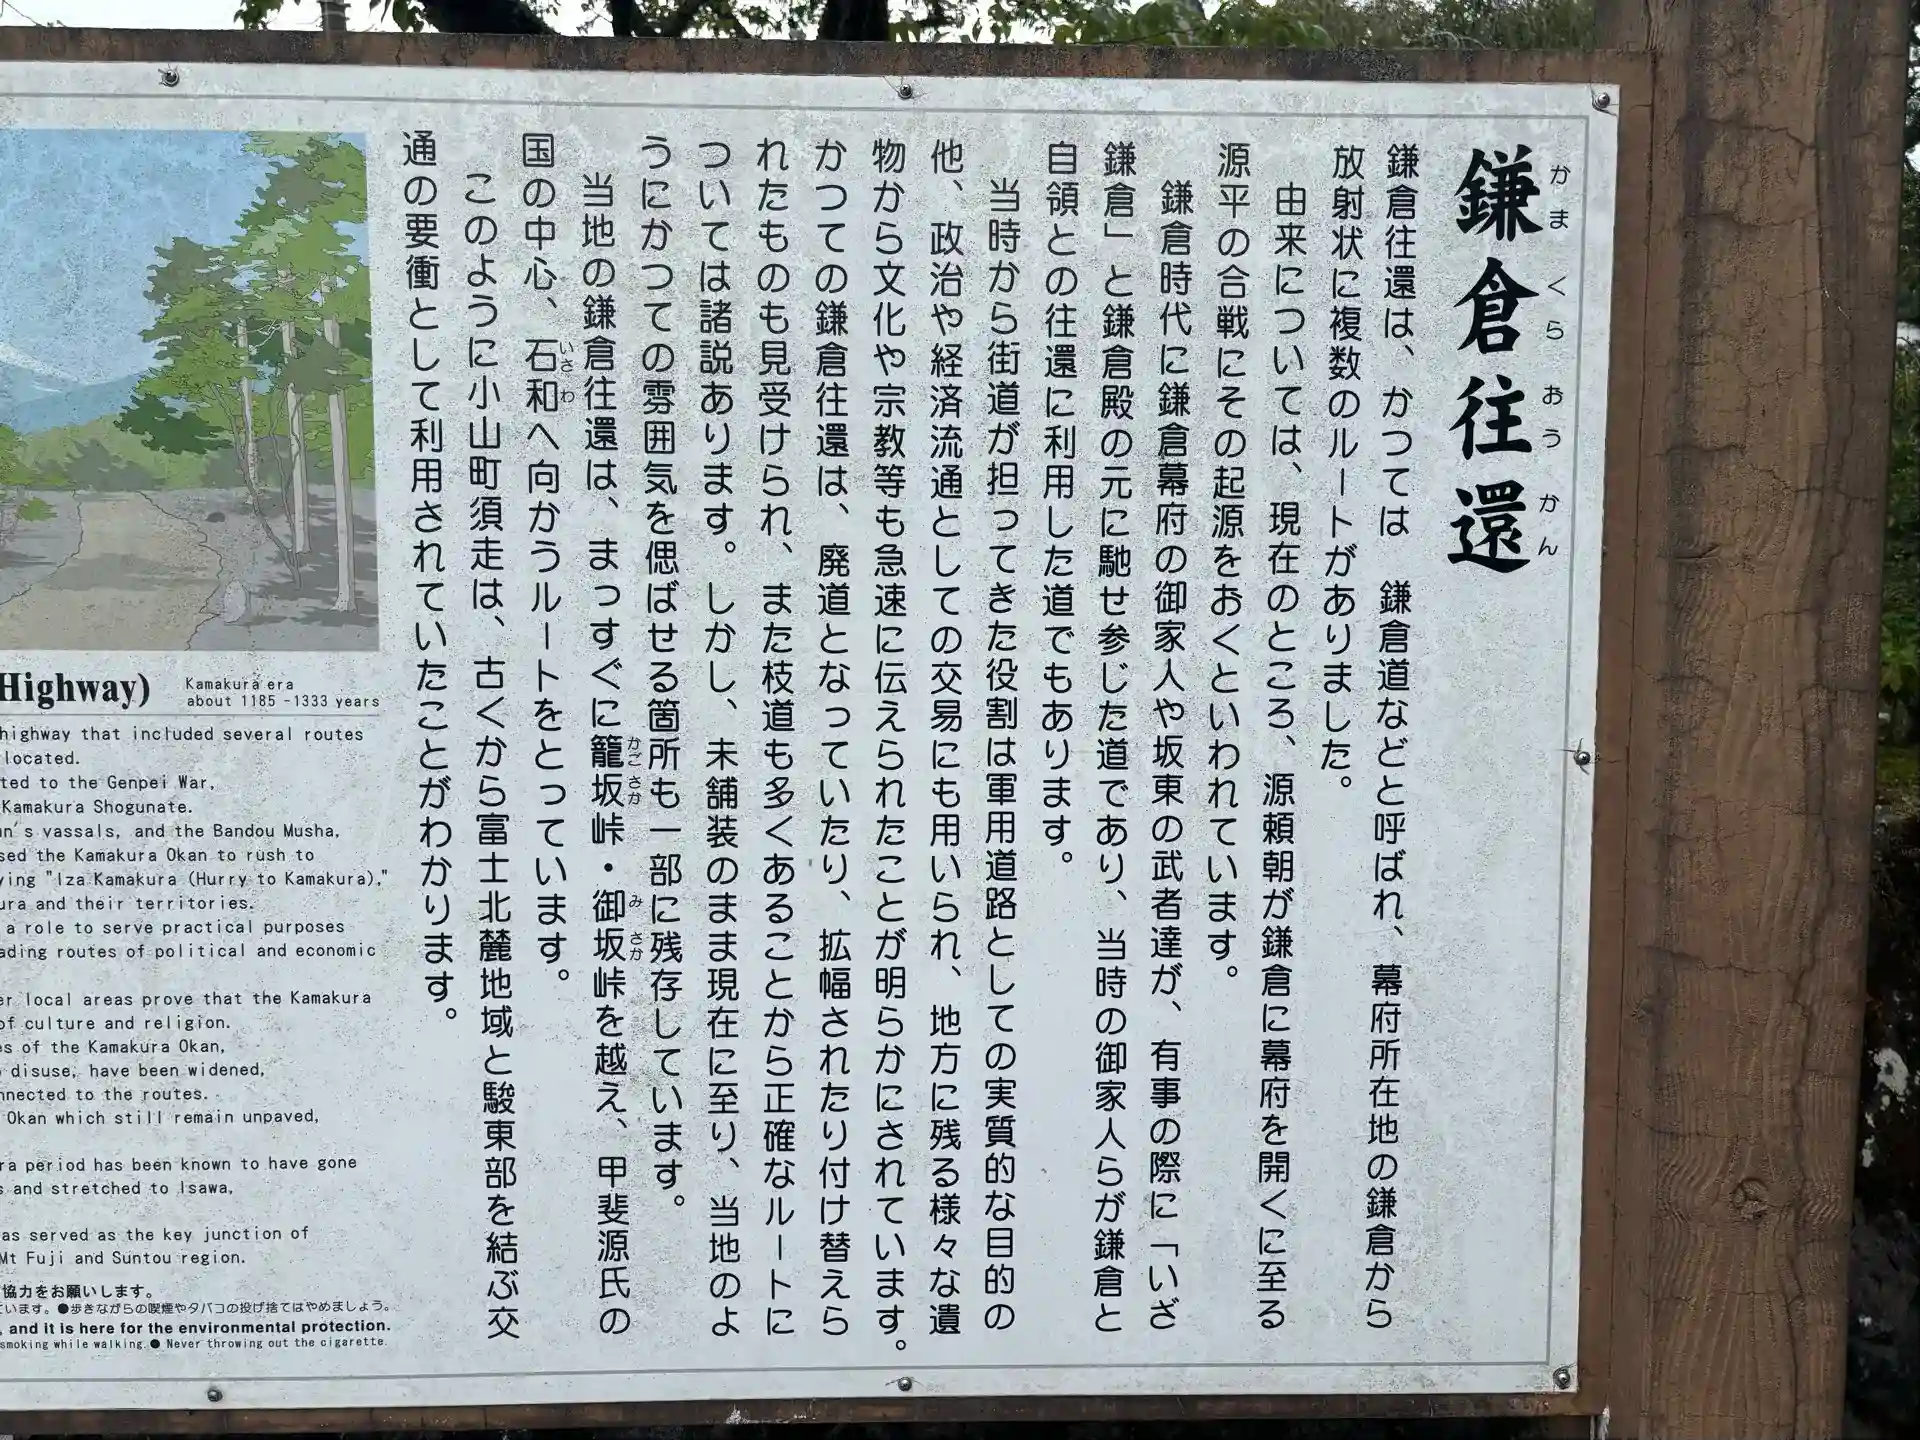 鎌倉往還
かまくらおうかん
鎌倉往還は、かつては 鎌倉道などと呼ばれ、幕府所在地の鎌倉から
放射状に複数のルートがありました。
由来については、現在のところ、源頼朝が鎌倉に幕府を開くに至る
源平の合戦にその起源をおくといわれています。
鎌倉時代に鎌倉幕府の御家人や坂東の武者達が、有事の際に「いざ
鎌倉」と鎌倉殿の元に馳せ参じた道であり、当時の御家人らが鎌倉と
自領との往還に利用した道でもあります。
当時から街道が担ってきた役割は軍用道路としての実質的な目的の
他、政治や経済流通としての交易にも用いられ、地方に残る様々な遺
物から文化や宗教等も急速に伝えられたことが明らかにされています。
かつての鎌倉往還は、廃道となっていたり、拡幅されたり付け替えら
れたものも見受けられ、また枝道も多くあることから正確なルートに
ついては諸説あります。しかし、未舗装のまま現在に至り、当地のよ
うにかつての雰囲気を偲ばせる箇所も一部に残存しています。
当地の鎌倉往還は、まっすぐに籠坂峠・御坂峠を越え、甲斐源氏の
かごさか みさか
国の中心、石和へ向かうルートをとっています。
いさわ
このように小山町須走は、古くから富士北麓地域と駿東部を結ぶ交
通の要衝として利用されていたことがわかります。
Highway)
Kamakura era
about 1185 -1333 years
highway that included several routes
located.
ted to the Genpei War,
Kamakura Shogunate.
n's vassals, and the Bandou Musha,
sed the Kamakura Okan to rush to
ying "Iza Kamakura (Hurry to Kamakura),"
ura and their territories.
a role to serve practical purposes
ading routes of political and economic
er local areas prove that the Kamakura
of culture and religion.
es of the Kamakura Okan,
disuse, have been widened,
nnected to the routes.
Okan which still remain unpaved,
ra period has been known to have gone
s and stretched to Isawa,
as served as the key junction of
Mt Fuji and Suntou region.
協力をお願いします。
ています。●歩きながらの喫煙やタバコの投げ捨てはやめましょう。
, and it is here for the environmental protection.
smoking while walking.● Never throwing out the cigarette.